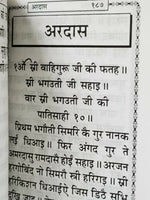 अरदास
१८७
अरदास
१ਓ स्री वाहिगुरू जी की फतह॥
स्री भगउती जी सहाइ॥
वार स्री भगउती जी की
पातिसाही १०॥
प्रिथम भगौती सिमरि कै गुर नानक
लईं धिआइ॥ फिर अंगद गुर ते
अमरदासु रामदासै होईं सहाइ॥ अरजन
हरगोबिंद नो सिमरौ स्री हरिराइ॥ स्री
हरिक्रिशन धिआईऐ जिस डिठै सभि
दुख जाइ॥